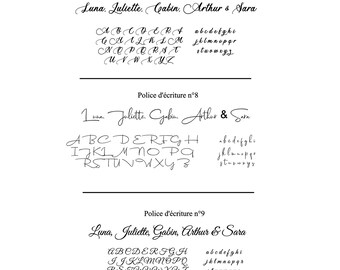 Luna, Juliette, Gabin, Arthur & Sara
A B C D E F G H I J K L M N O P Q R S T U V W X Y Z
a b c d e f g h i j k l m n o p q r s t u v w x y z
Police d'écriture n°8
Luna, Juliette, Gabin, Arthur & Sara
A B C D E F G H
I J K L M N O P Q
R S T U V W X Y Z
a b c d e f g h i
j k l m n o p q r
s t u v w x y z
Police d'écriture n°9
Luna, Juliette, Gabin, Arthur & Sara
A B C D E F G H
I J K L M N O P Q
a b c d e f g h i
j k l m n o p q r
s t u v w x y z